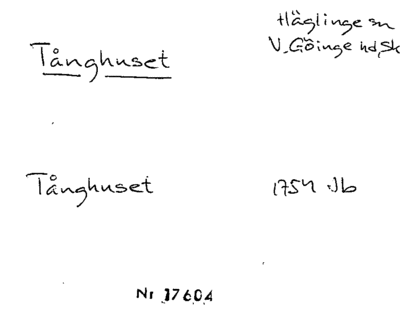 Tånghuset
Häglinge sn
V. Göinge hd, Sk
Tånghuset
1754 Jb
Nr 17604